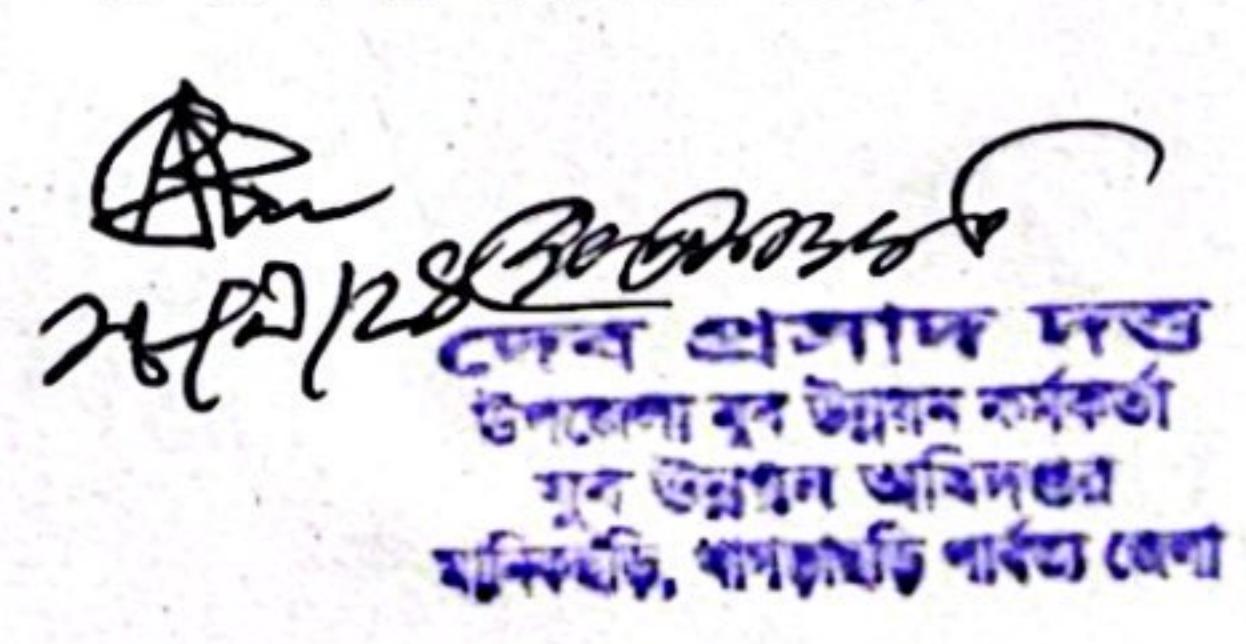 দেব প্রসাদ দত্ত
উপজেলা যুব উন্নয়ন কর্মকর্তা
যুব উন্নয়ন অধিদপ্তর
মানিকছড়ি, খাগড়াছড়ি পার্বত্য জেলা